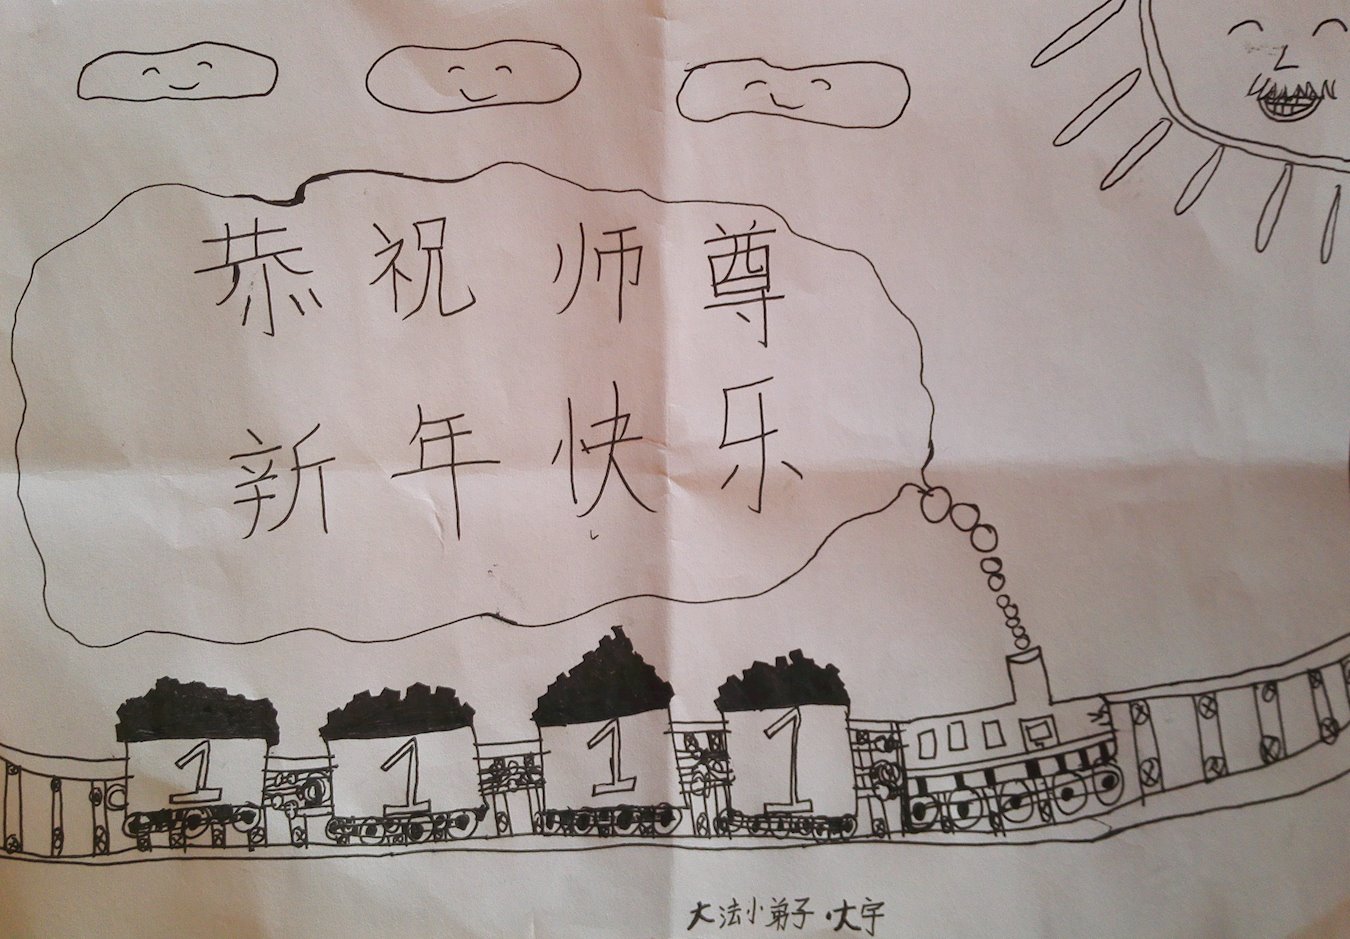 恭祝师尊
新年快乐
1 1 1 1
大法小弟子·大宇